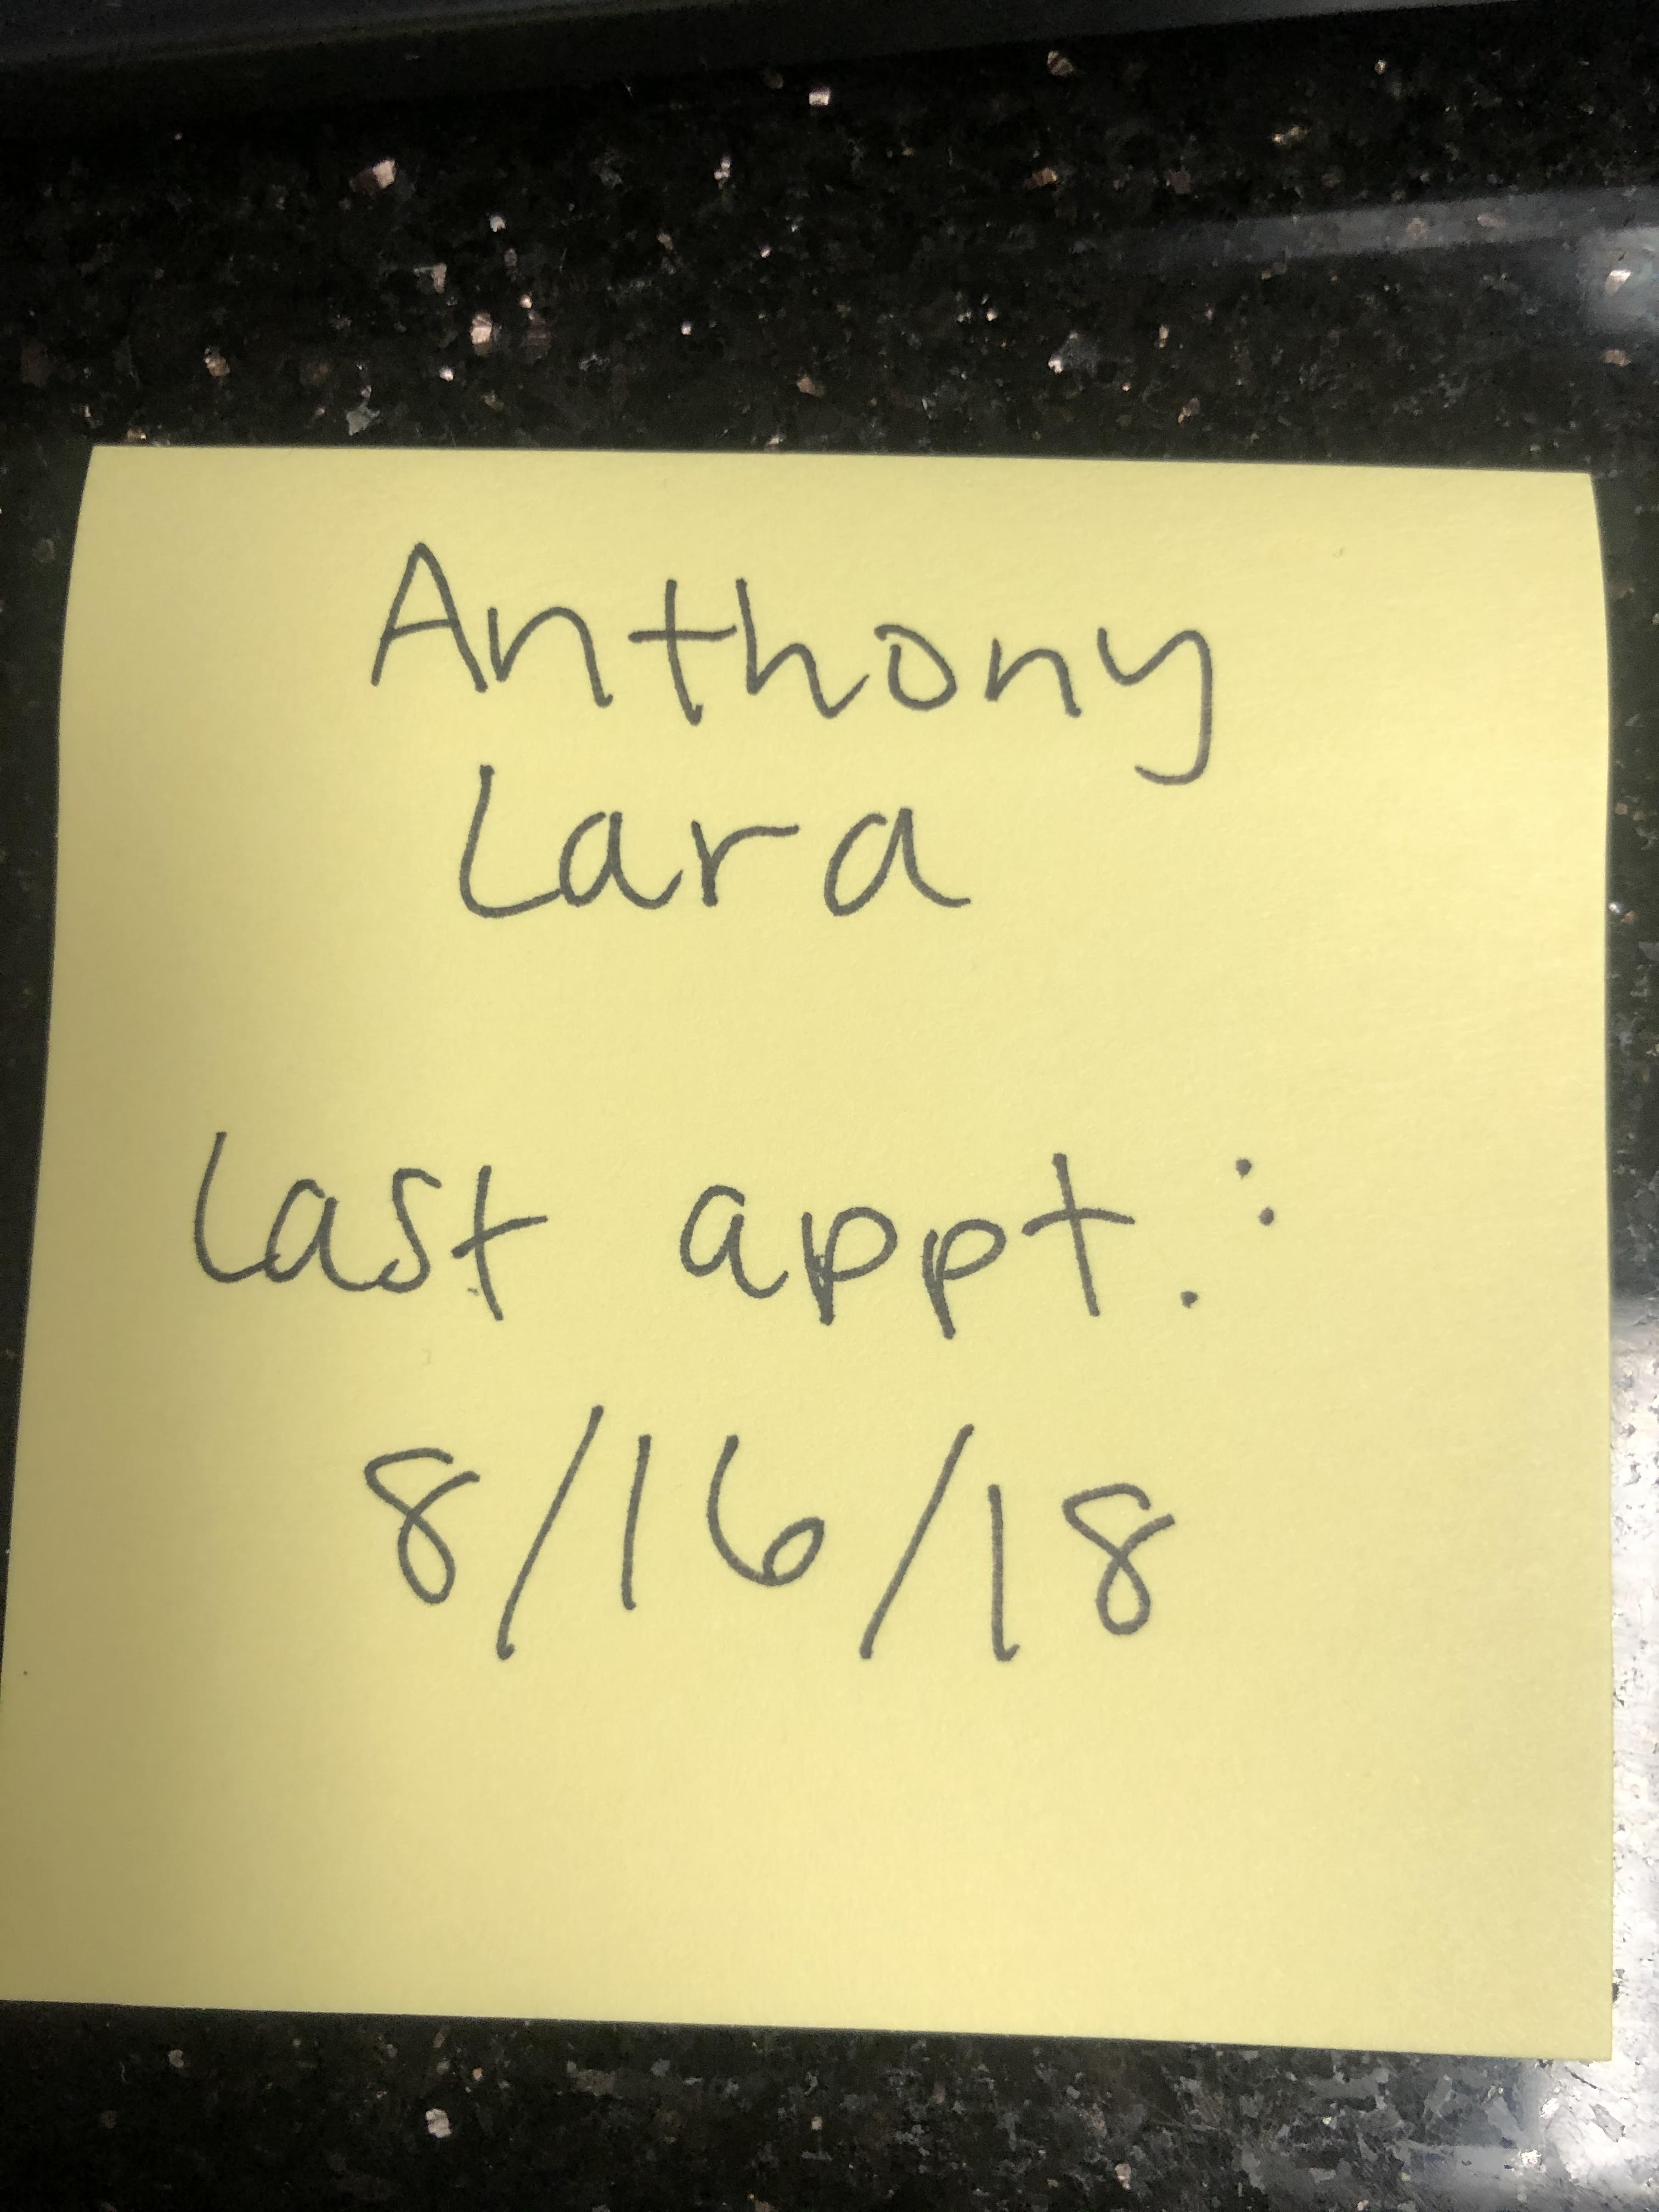 Anthony
Lara
Last appt.:
8/16/18